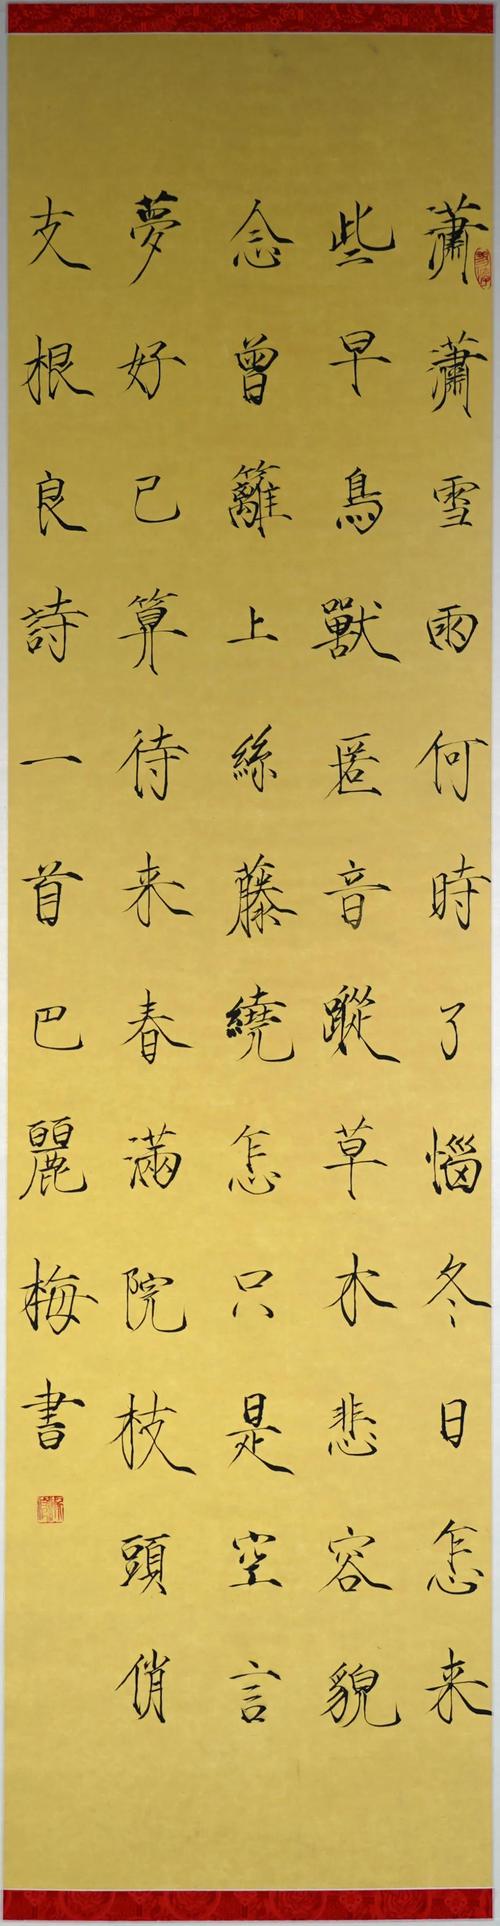 瀟瀟雪雨何時了惱冬日怎来
些早鳥獸匿音蹤草木悲容貌
念曾籬上絲藤繞怎只是空言
夢好已算待来春滿院枝頭俏
支根良詩一首巴麗梅書